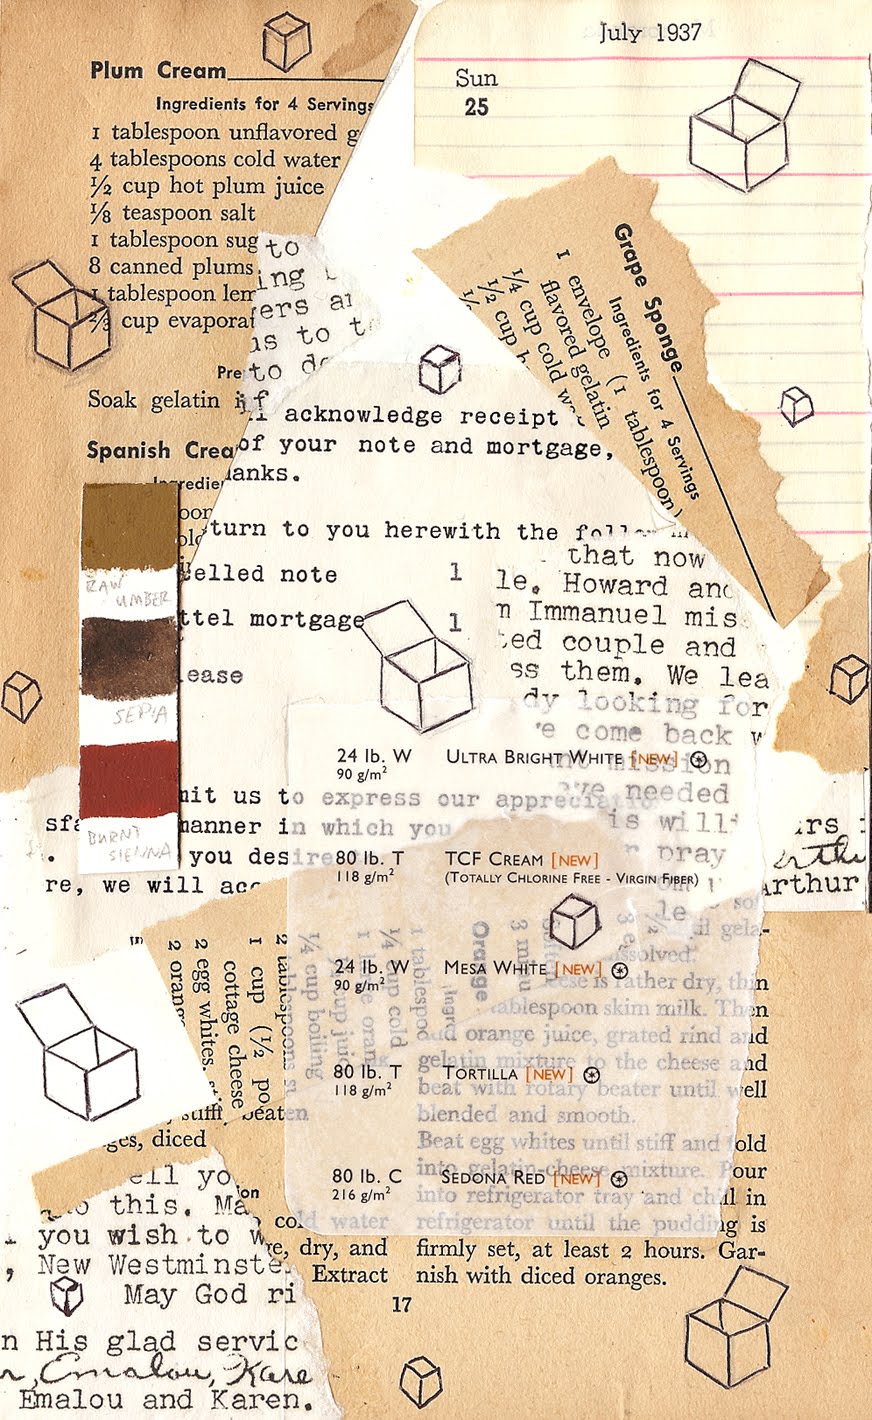 Plum Cream
Ingredients for 4 Servings
1 tablespoon unflavored g
4 tablespoons cold water
½ cup hot plum juice
⅛ teaspoon salt
1 tablespoon sug
8 canned plums
1 tablespoon lem
⅔ cup evapora
Pre
Soak gelatin i
Spanish Crea
Ingredie
July 1937
Sun
25
Grape Sponge
Ingredients for 4 Servings
1 envelope (1 tablespoon)
flavored gelatin
¼ cup cold wa
½ cup h
to
ing
ers a
us to t
to de
if
acknowledge receipt
of your note and mortgage,
anks.
turn to you herewith the follow
celled note 1
ttel mortgage 1
lease
RAW
UMBER
SEPIA
BURNT
SIENNA
that now
le. Howard and
n Immanuel mis
ted couple and
ss them. We lea
dy looking for
e come back w
mission
ve needed
is will
r pray
mit us to express our appreciatio
sfa manner in which you
. you desire
re, we will acc
urs
Arthur
24 lb. W ULTRA BRIGHT WHITE [NEW]
90 g/m²
80 lb. T TCF CREAM [NEW]
118 g/m² (TOTALLY CHLORINE FREE - VIRGIN FIBER)
24 lb. W MESA WHITE [NEW]
90 g/m²
80 lb. T TORTILLA [NEW]
118 g/m²
80 lb. C SEDONA RED [NEW]
216 g/m²
2 orang
2 egg whites,
cottage cheese
1 cup (½ po
2 tablespoons
¼ cup boiling
¼ cup cold
1 tablespoo
Orange
Ingre
stiffl beaten
ges, diced
il gela-
issolved.
ese is rather dry, thin
tablespoon skim milk. Then
add orange juice, grated rind and
gelatin mixture to the cheese and
beat with rotary beater until well
blended and smooth.
Beat egg whites until stiff and fold
into gelatin-cheese mixture. Pour
into refrigerator tray and chill in
refrigerator until the pudding is
firmly set, at least 2 hours. Gar-
nish with diced oranges.
on
cold water
ge, dry, and
Extract
17
ell yo
to this. Ma
you wish to w
, New Westminste
May God ri
n His glad servic
r, Emalou, Kare
Emalou and Karen.